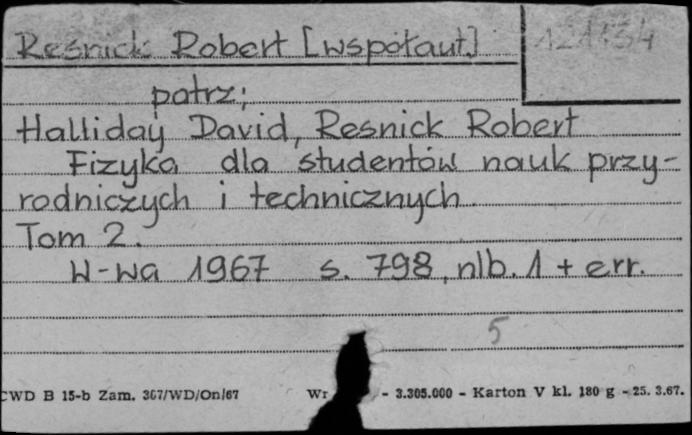 Resnick Robert [współaut.]
patrz;
Halliday David, Resnick Robert
Fizyka dla studentów nauk przy-
rodniczych i technicznych.
Tom 2.
W-wa 1967 s. 798, nlb. 1 + err.
5
CWD B 15-b Zam. 367/WD/On/67 Wr - 3.305.000 - Karton V kl. 180 g - 25. 3.67.